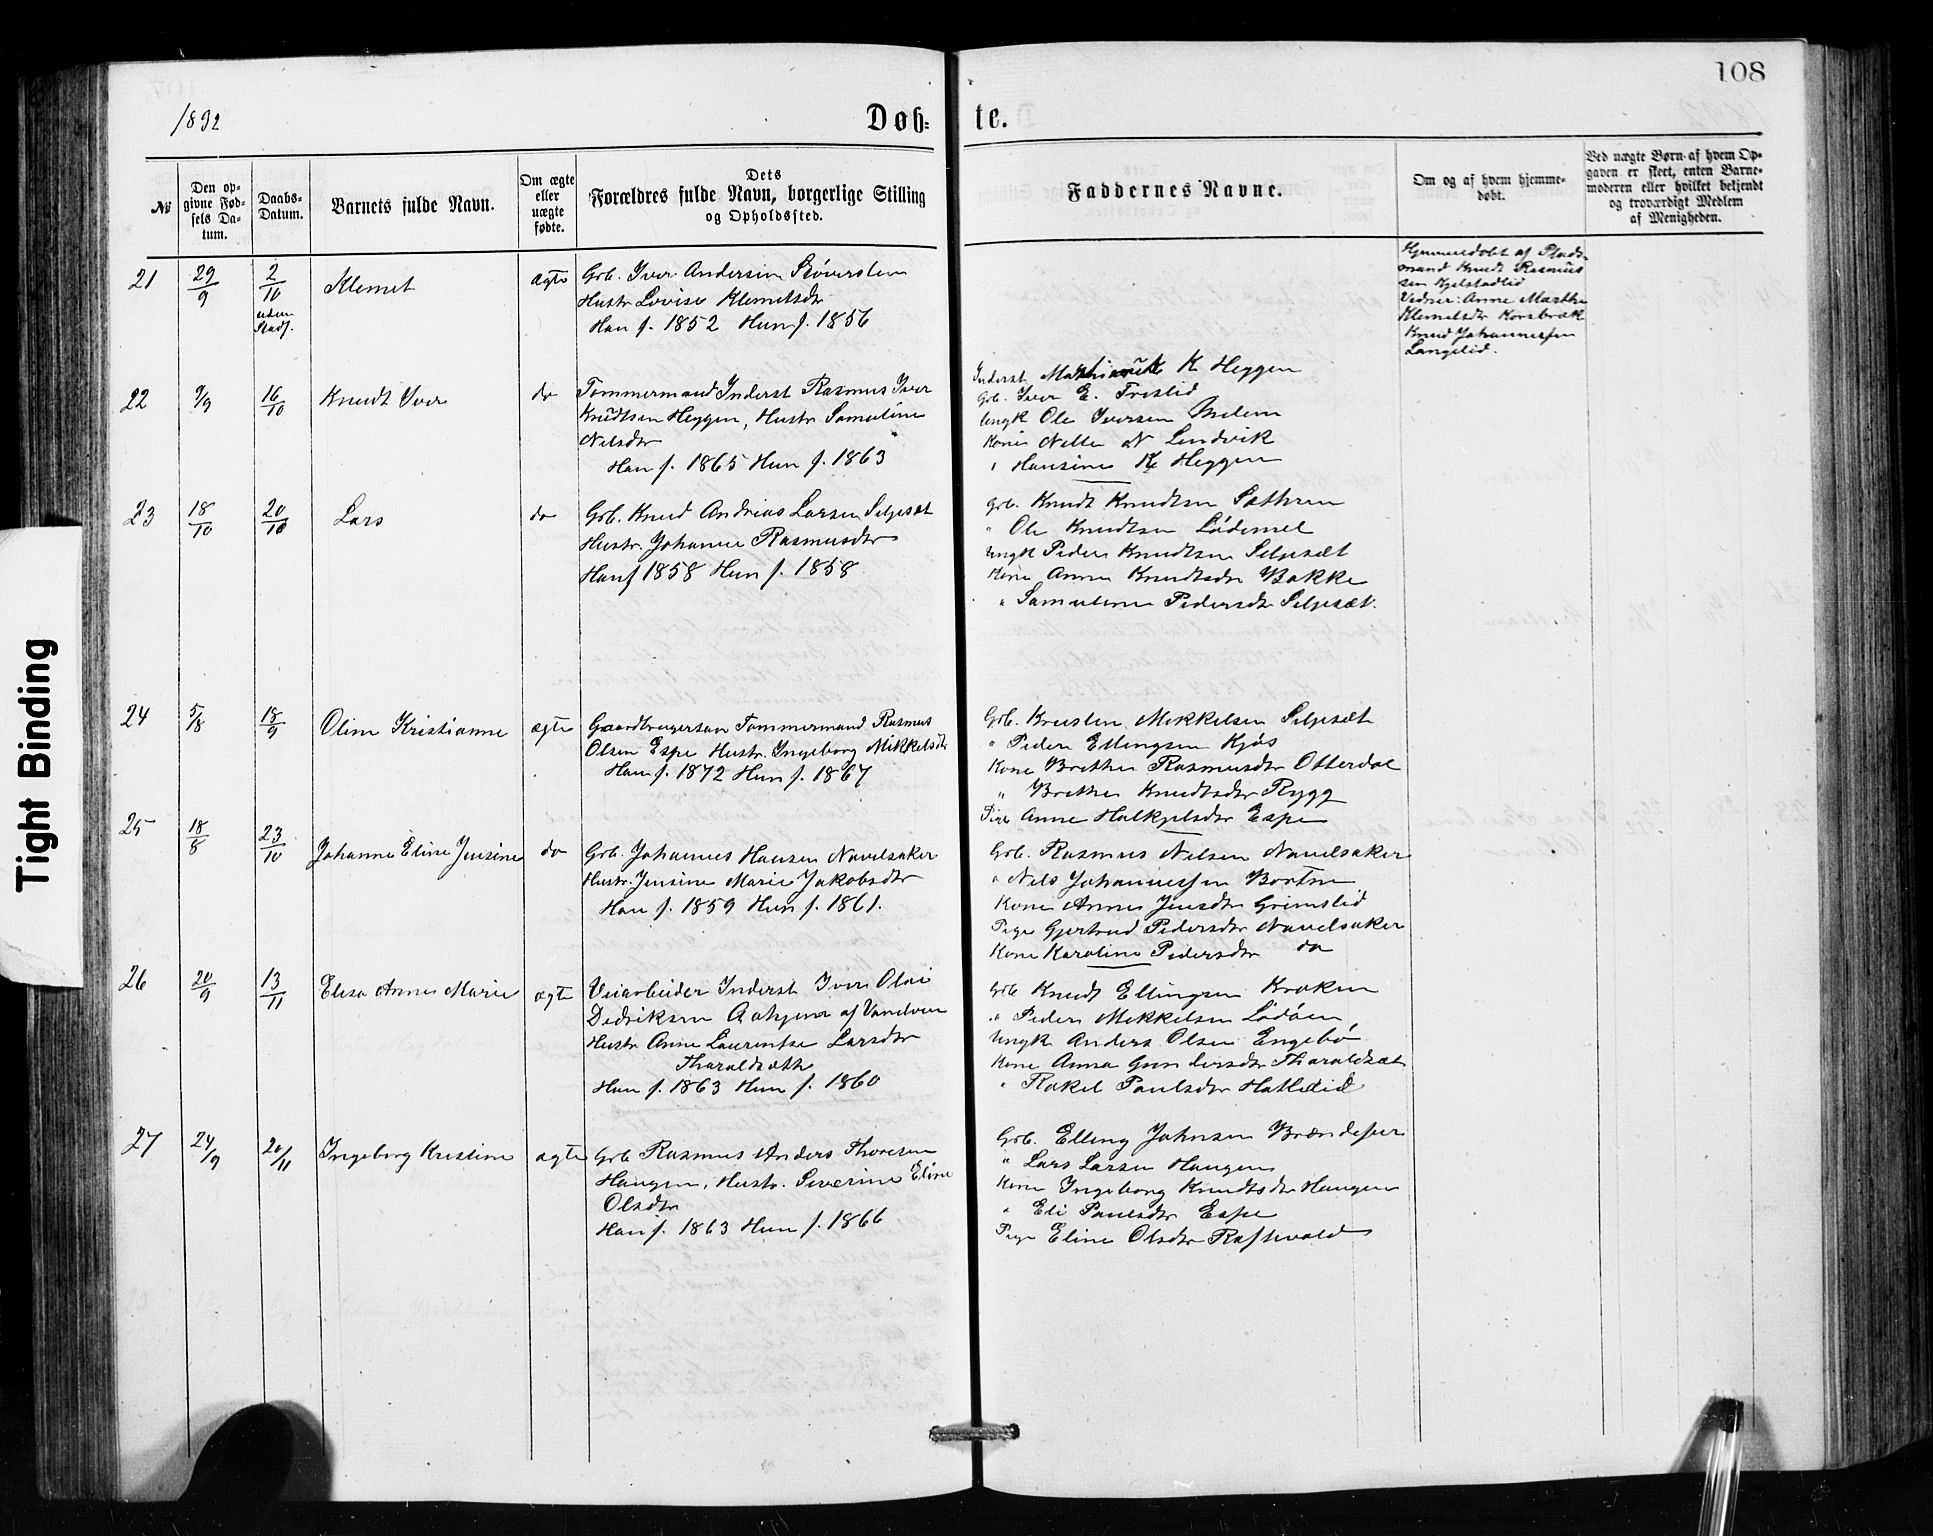 108
1892
Døb- te.
№
Den opgivne Fødsels Datum.
Daabs-Datum.
Barnets fulde Navn.
Om ægte eller uægte fødte.
Dets Forældres fulde Navn, borgerlige Stilling og Opholdssted.
Faddernes Navne.
Om og af hvem hjemmedøbt.
Ved uægte Børn af hvem Opgaven er skeet, enten Barnemoderen eller hvilket bekjendt og troværdigt Medlem af Menigheden.
21 29/9 2/10 uden Stadf. Klemet ægte
Grb. Iver Andersen
Hustr Lovise Klemetsdtr
Han f. 1852 Hun f. 1856
Hjemmedøbt af Plads-
mand Knudt Rasmus
sen Kjelstadlid
Vidner: Anne Marthe
Klemetsdtr Korsbræk
Knud Johannessen
Langelid.
22 9/9 16/10 Knudt Iver do
Tømmermand Inderst Rasmus Iver
Knudtsen Heggen, Hustr Samuline
Nilsdtr
Han f. 1865 Hun f. 1863
Inderst K Heggen
Grb. Iver E. Tristlid
Ungk Ole Iversen
Kone Nille N Lendvik
" Hansine K Heggen
23 18/10 20/10 Lars do
Grb. Knud Andreas Larsen Seljesæt
Hustr. Johanne Rasmusdtr
Han f 1858 Hun f. 1858
Grb. Knudt Knudtsen Sæthren
" Ole Knudtsen Lødemel
Ungk Peder Knudtsen Seljesæt
Kone Anne Knudtsdtr Bakke
" Samuline Pedersdtr Seljesæt.
24 5/8 18/9 Oline Kristianne ægte
Gaardbrugersøn Tømmermand Rasmus
Olsen Espe Hustr. Ingeborg Mikkelsdtr
Han f. 1872 Hun f. 1867
Grb. Kristen Mikkelsen Seljesæt
" Peder Ellingsen Kjøs
Kone Brithe Rasmusdtr Otterdal
" Brithe Knudtsdtr Rygg
Pige Anne Halkjelsdtr Espe
25 18/8 23/10 Johanne Eline Jensine do
Grb. Johannes Hansen Navelsaker
Hustr. Jensine Marie Jakobsdtr
Han f. 1859 Hun f. 1861.
Grb. Rasmus Nilsen Navelsaker
" Nils Johannessen Bortne
Kone Anne Jensdtr Grimstid
Pige Gjertrud Pedersdtr Navelsaker
Kone Karoline Pedersdtr do
26 20/9 13/11 Elisa Anne Marie ægte
Veiarbeider Inderst Iver Olai
Didriksen af Vanelven
Hustr Anne Laurentse Larsdtr
Tharaldsæth
Han f. 1863 Hun f. 1860
Grb Knudt Ellingsen Kroken
" Peder Mikkelsen Lødøen
Ungk Anders Olsen Engebø
Kone Anna Gundersdtr Tharaldsæt
" Rakel Paulsdtr Hatlelid
27 24/9 20/11 Ingeborg Kristine ægte
Grb Rasmus Anders Thoresen
Haugen, Hustr. Severine Eline
Olsdtr
Han f. 1863 Hun f. 1866
Grb. Elling Johnsen
" Lars Larsen Haugen
Kone Ingeborg Knudtsdtr Haugen
" Eli Paulsdtr Espe
Pige Eline Olsdtr Raftevold
Tight Binding